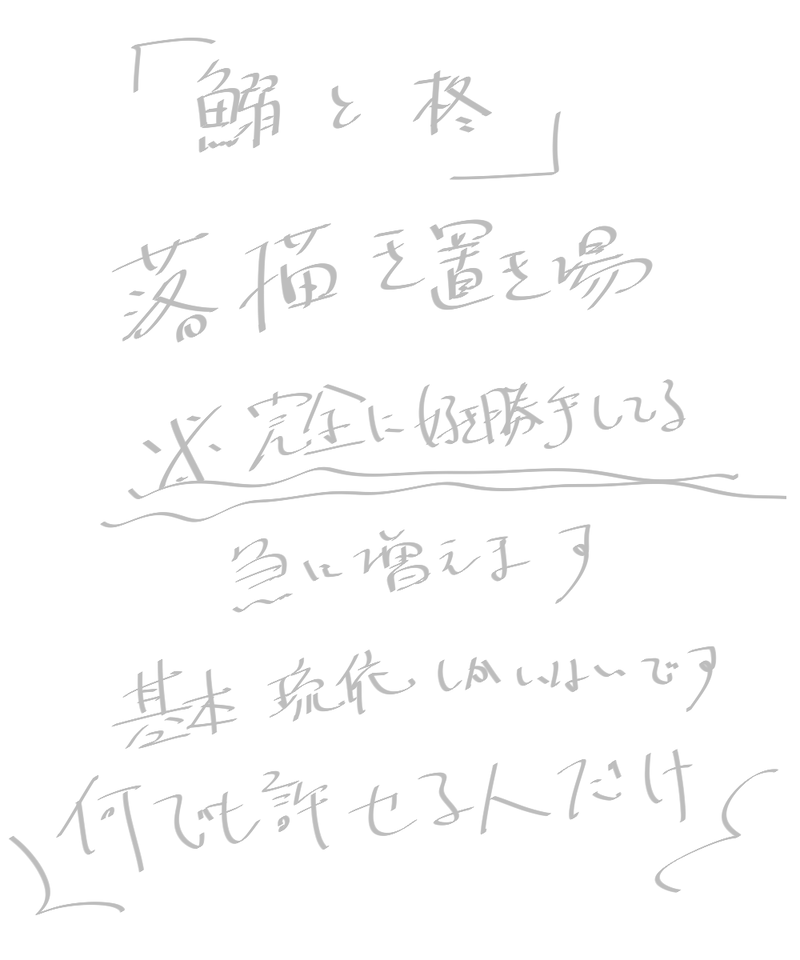 「鰯と柊」
落描き置き場
※完全に好き勝手してる
急に増えます
基本琉依しかいないです
何でも許せる人だけ